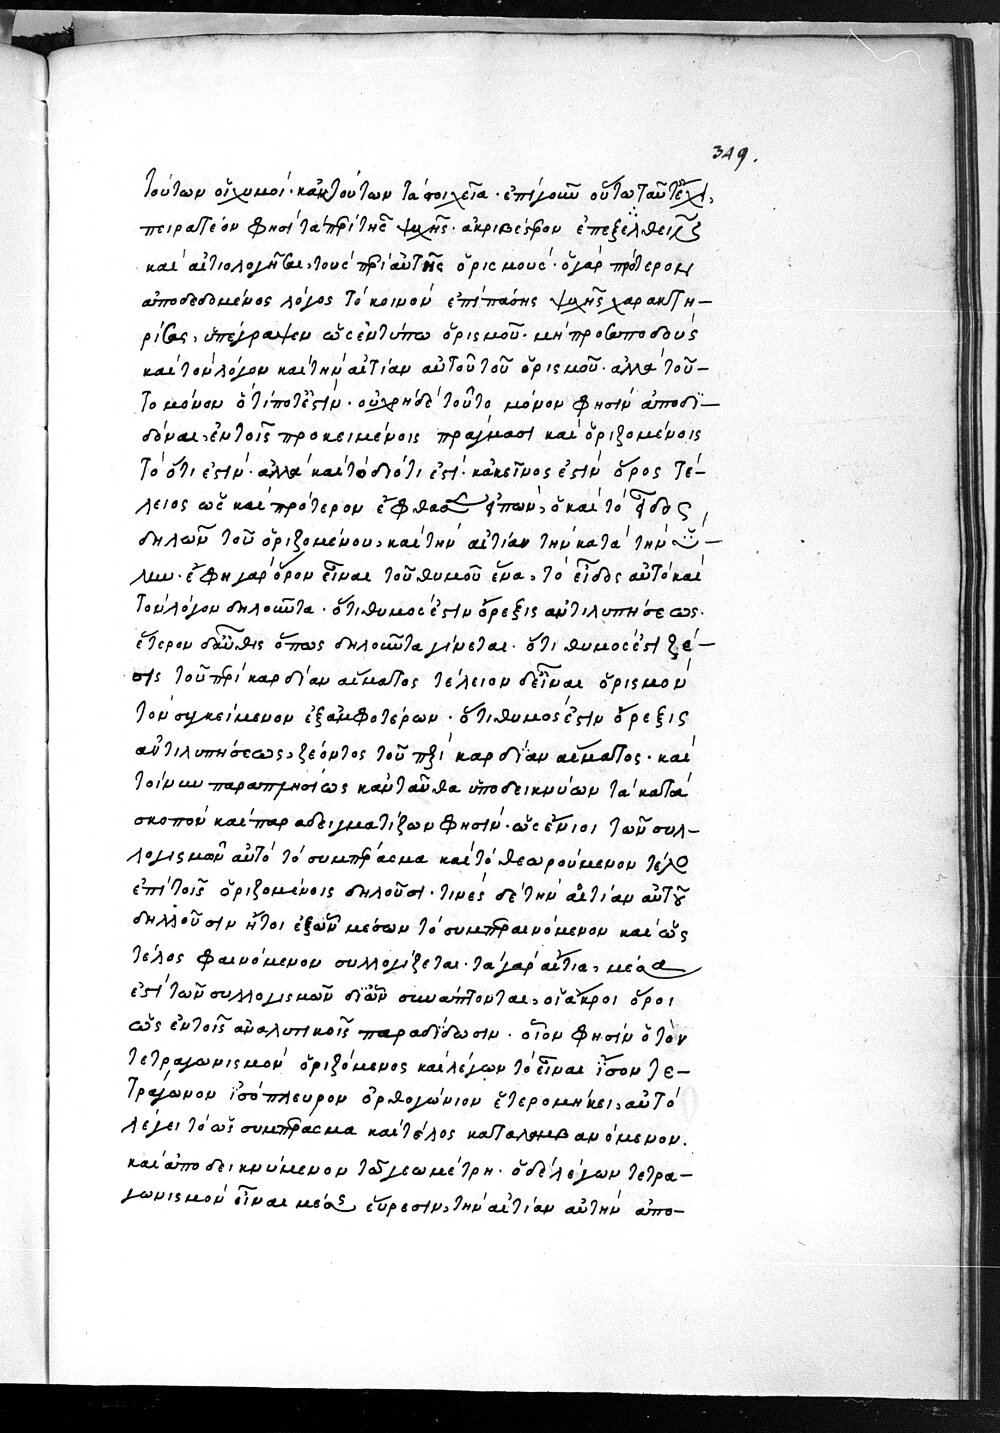 349.
τούτων οἱ χυμοί· κἀκ τούτων τὰ στοιχεῖα· ἐπὶ γοῦν οὕτω ταῦτ' ἔχει,
πειρατέον φησὶ τὰ περὶ τῆς ψυχῆς ἀκριβέστερον ἐπεξελθεῖν
καὶ αἰτιολογῆσαι, τοὺς περὶ αὐτῆς ὁρισμούς· ὁ γὰρ πρότερον
ἀποδεδομένος λόγος τὸ κοινὸν ἐπὶ πάσης ψυχῆς χαρακτη-
ρίσας, ὑπέγραψεν ὡς ἐν τύπω ὁρισμοῦ· μὴ προσυποδοὺς
καὶ τὸν λόγον καὶ τὴν αἰτίαν αὐτοῦ τοῦ ὁρισμοῦ· ἀλλὰ τοῦ-
το μόνον ὅτί ποτ' ἐστίν· οὐ χρὴ δὲ τοῦτο μόνον φησὶν ἀποδι-
δόναι, ἐν τοῖς προκειμένοις πράγμασι καὶ ὁριζομένοις
τὸ ὅτι ἐστίν· ἀλλὰ καὶ τὸ διότι ἐστί· κἀκεῖνος ἐστὶν ὅρος τέ-
λειος ὡς καὶ πρότερον ἔφθασεν εἰπών, ὁ καὶ τὸ εἶδος
δηλῶν τοῦ ὁριζομένου, καὶ τὴν αἰτίαν τὴν κατὰ τὴν ὕ-
λην· ἔφη γὰρ ὅρον εἶναι τοῦ θυμοῦ ἕνα, τὸ εἶδος αὐτὸ καὶ
τὸν λόγον δηλοῦντα· ὅτι θυμός ἐστιν ὄρεξις ἀντιλυπήσεως.
ἕτερον δ' αὖθις ὅπως δηλοῦντα γίνεται· ὅτι θυμός ἐστι ζέ-
σις τοῦ περὶ καρδίαν αἵματος τέλειον δ' εἶναι ὁρισμὸν
τὸν συγκείμενον ἐξ ἀμφοτέρων· ὅτι θυμός ἐστιν ὄρεξις
ἀντιλυπήσεως, ζέοντος τοῦ περὶ καρδίαν αἵματος· καὶ
τοίνυν παραπλησίως κἀνταῦθα ὑποδεικνύων τὰ κατὰ
σκοπὸν καὶ παραδειγματίζων φησίν· ὡς ἔνιοι τῶν συλ-
λογισμῶν αὐτὸ τὸ συμπέρασμα καὶ τὸ θεωρούμενον τέλος
ἐπὶ τοῖς ὁριζομένοις δηλοῦσι· τινὲς δὲ τὴν αἰτίαν αὐτοῦ
δηλλοῦσιν ἤτοι ἐξ ὧν μέσων τὸ συμπεραινόμενον καὶ ὡς
τέλος φαινόμενον συλλογίζεται· τὰ γὰρ αἴτια, μέσα
ἐστὶ τῶν συλλογισμῶν δι' ὧν συνάπτονται, οἱ ἄκροι ὅροι
ὡς ἐν τοῖς ἀναλυτικοῖς παραδίδωσιν· οἷον φησὶν ὁ τὸν
τετραγωνισμὸν ὁριζόμενος καὶ λέγων τὸ εἶναι ἴσον τε-
τράγωνον ἰσόπλευρον ὀρθογώνιον ἑτερομήκει, αὐτὸ
λέγει τὸ ὡς συμπέρασμα καὶ τέλος καταλαμβανόμενον.
καὶ ἀποδεικνύμενον τῶ γεωμέτρη· ὁ δὲ λέγων τετρα-
γωνισμὸν εἶναι μέσης εὕρεσιν, τὴν αἰτίαν αὐτὴν ἀπο-